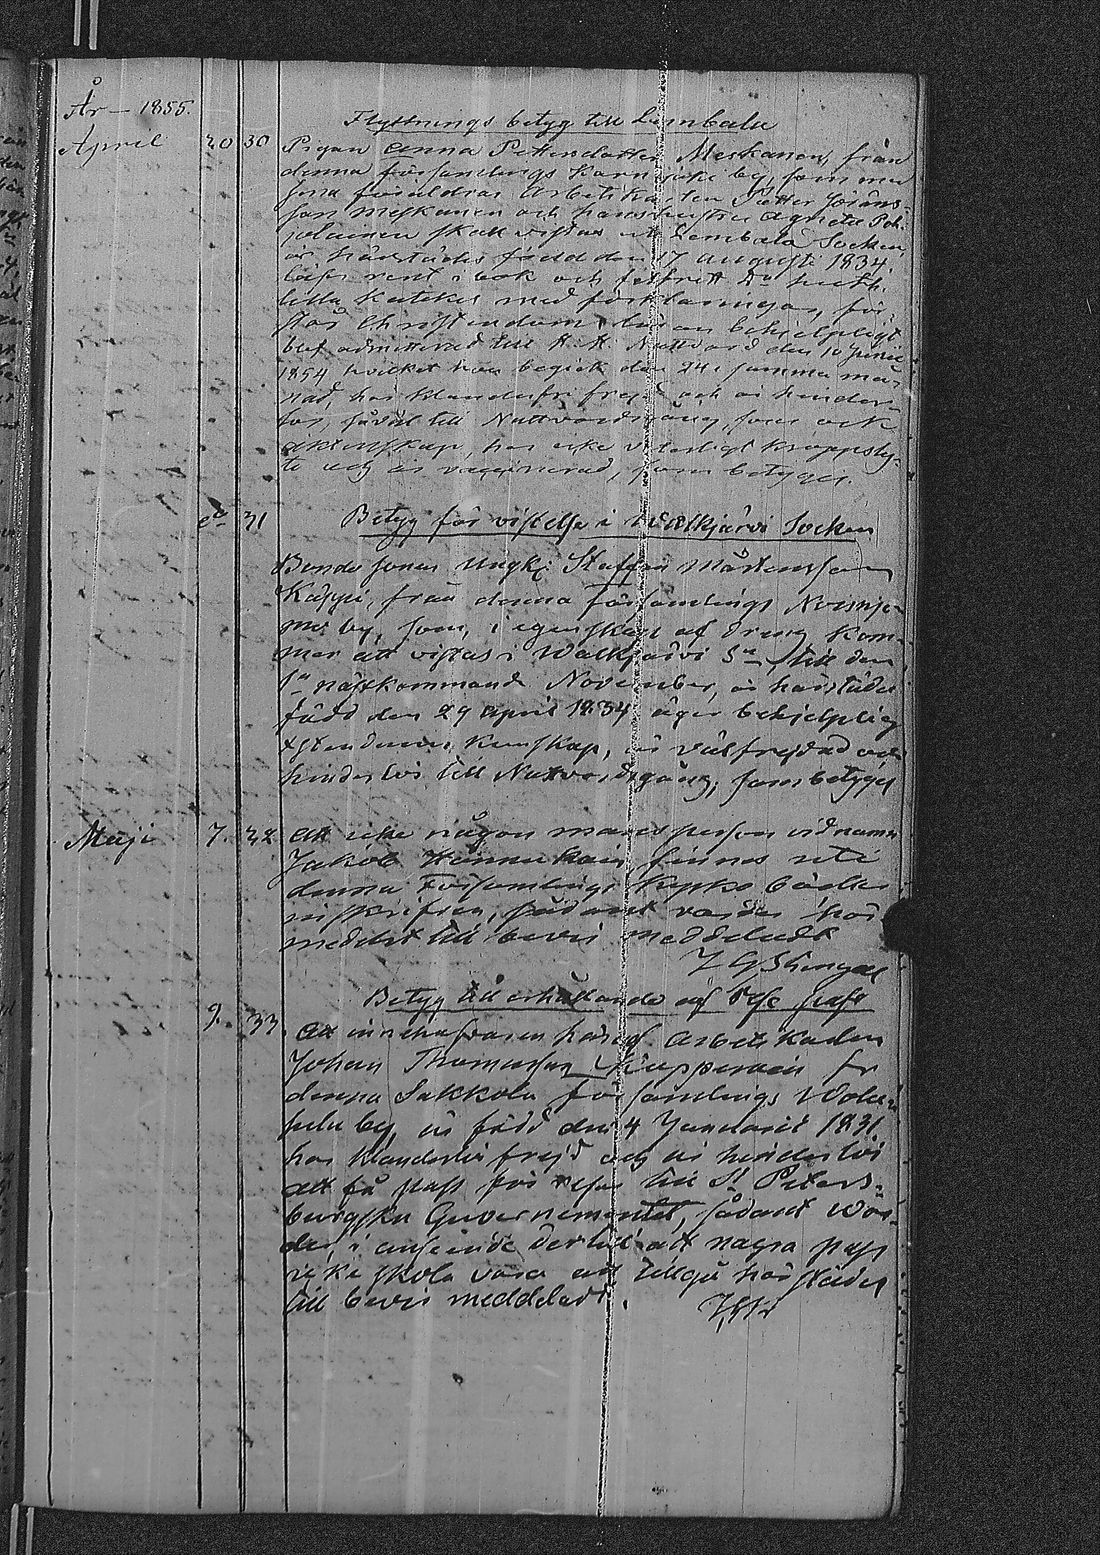 År – 1855.
Flyttnings betyg till Lembala
April 20 30 Pigan Anna Pettersdotter Meskanen, från
denna församlings by, som med
sina föräldrar Arbetskarlen Petter Jöråns
son Meskanen och hans hustru Agneta Poh
jolainen skall vistas i Lembala Socken
är härstädes född den 17 Augusti 1834.
läser rent i bok och Luth:
lilla Kateches med förklaringar, för
står Christendoms läran behjelpligt
blef admitterad till H. H. Nattvard den 10 Junii
1854 hvilket hon begick den 24 i samma må
nad, har klanderfri frejd och är hinder-
lös, såväl till Nattvardsgång, som ock
äktenskap, har icke veterligt kroppsly-
te och är vaccinerad, som betygas.
do 31 Betyg för vistelse i Walkjärvi Socken
Bonde sonen Ungk: Staffan Mårtensson
Käppi, från denna församlings
mo by, som, i egenskap af dräng kom-
mer att vistas i Walkjärvi Sn till den
1n nästkommande November, är härstädes
född den 29 April 1834 äger behjelplig
Xstendoms kunskap, är välfrejdad och
hinderlös till Nattvardsgång, som betygas
Maji 7. 32 Att icke någon mansperson vid namn
Jakob finnes uti
denna Församlings Kyrko böcker
inskrifven, sådant varder här
medelst till bevis meddeladt
Betyg till erhållande af Rese pass
9. 33. Att Arbetskarlen
Johan Thomasson Kapperoin fr
denna Sakkola församlings
by, är född den 4 Januarii 1831.
har klanderfri frejd och är hinderlös
att få pass för resor till St Peters-
burgska Guvernementet, sådant war-
der, i anseende dertill att några pass
icke skola vara att tillgå härstädes
till bevis meddeladt.